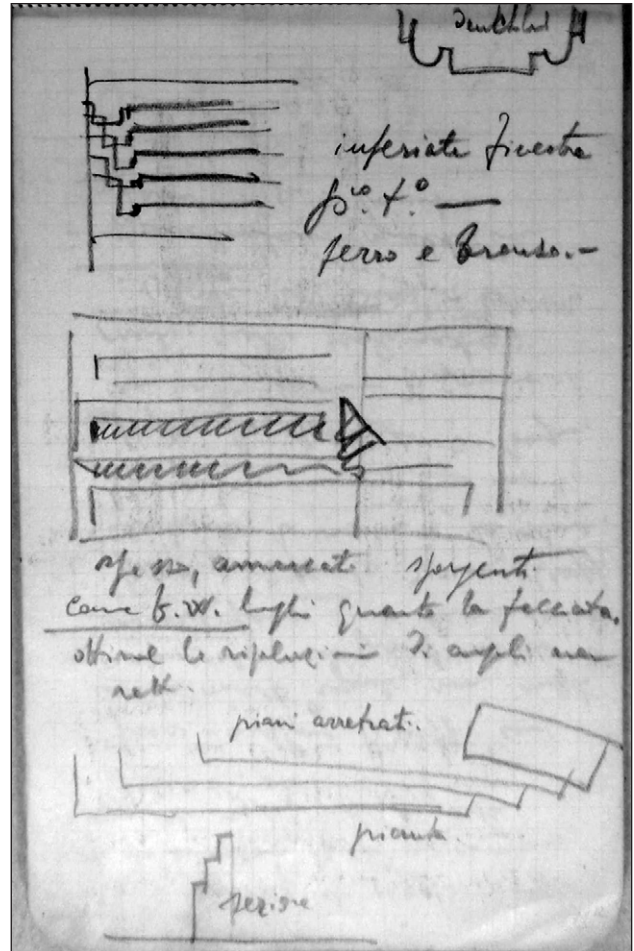 inferiate finestre
p.° t.° —
ferro e bronzo.—
spesso, ammaccati sporgenti
Come F.W. lunghi quanto la facciata.
ottime le risoluzioni di angoli non
retti.
piani arretrati.
pianta.
sezione